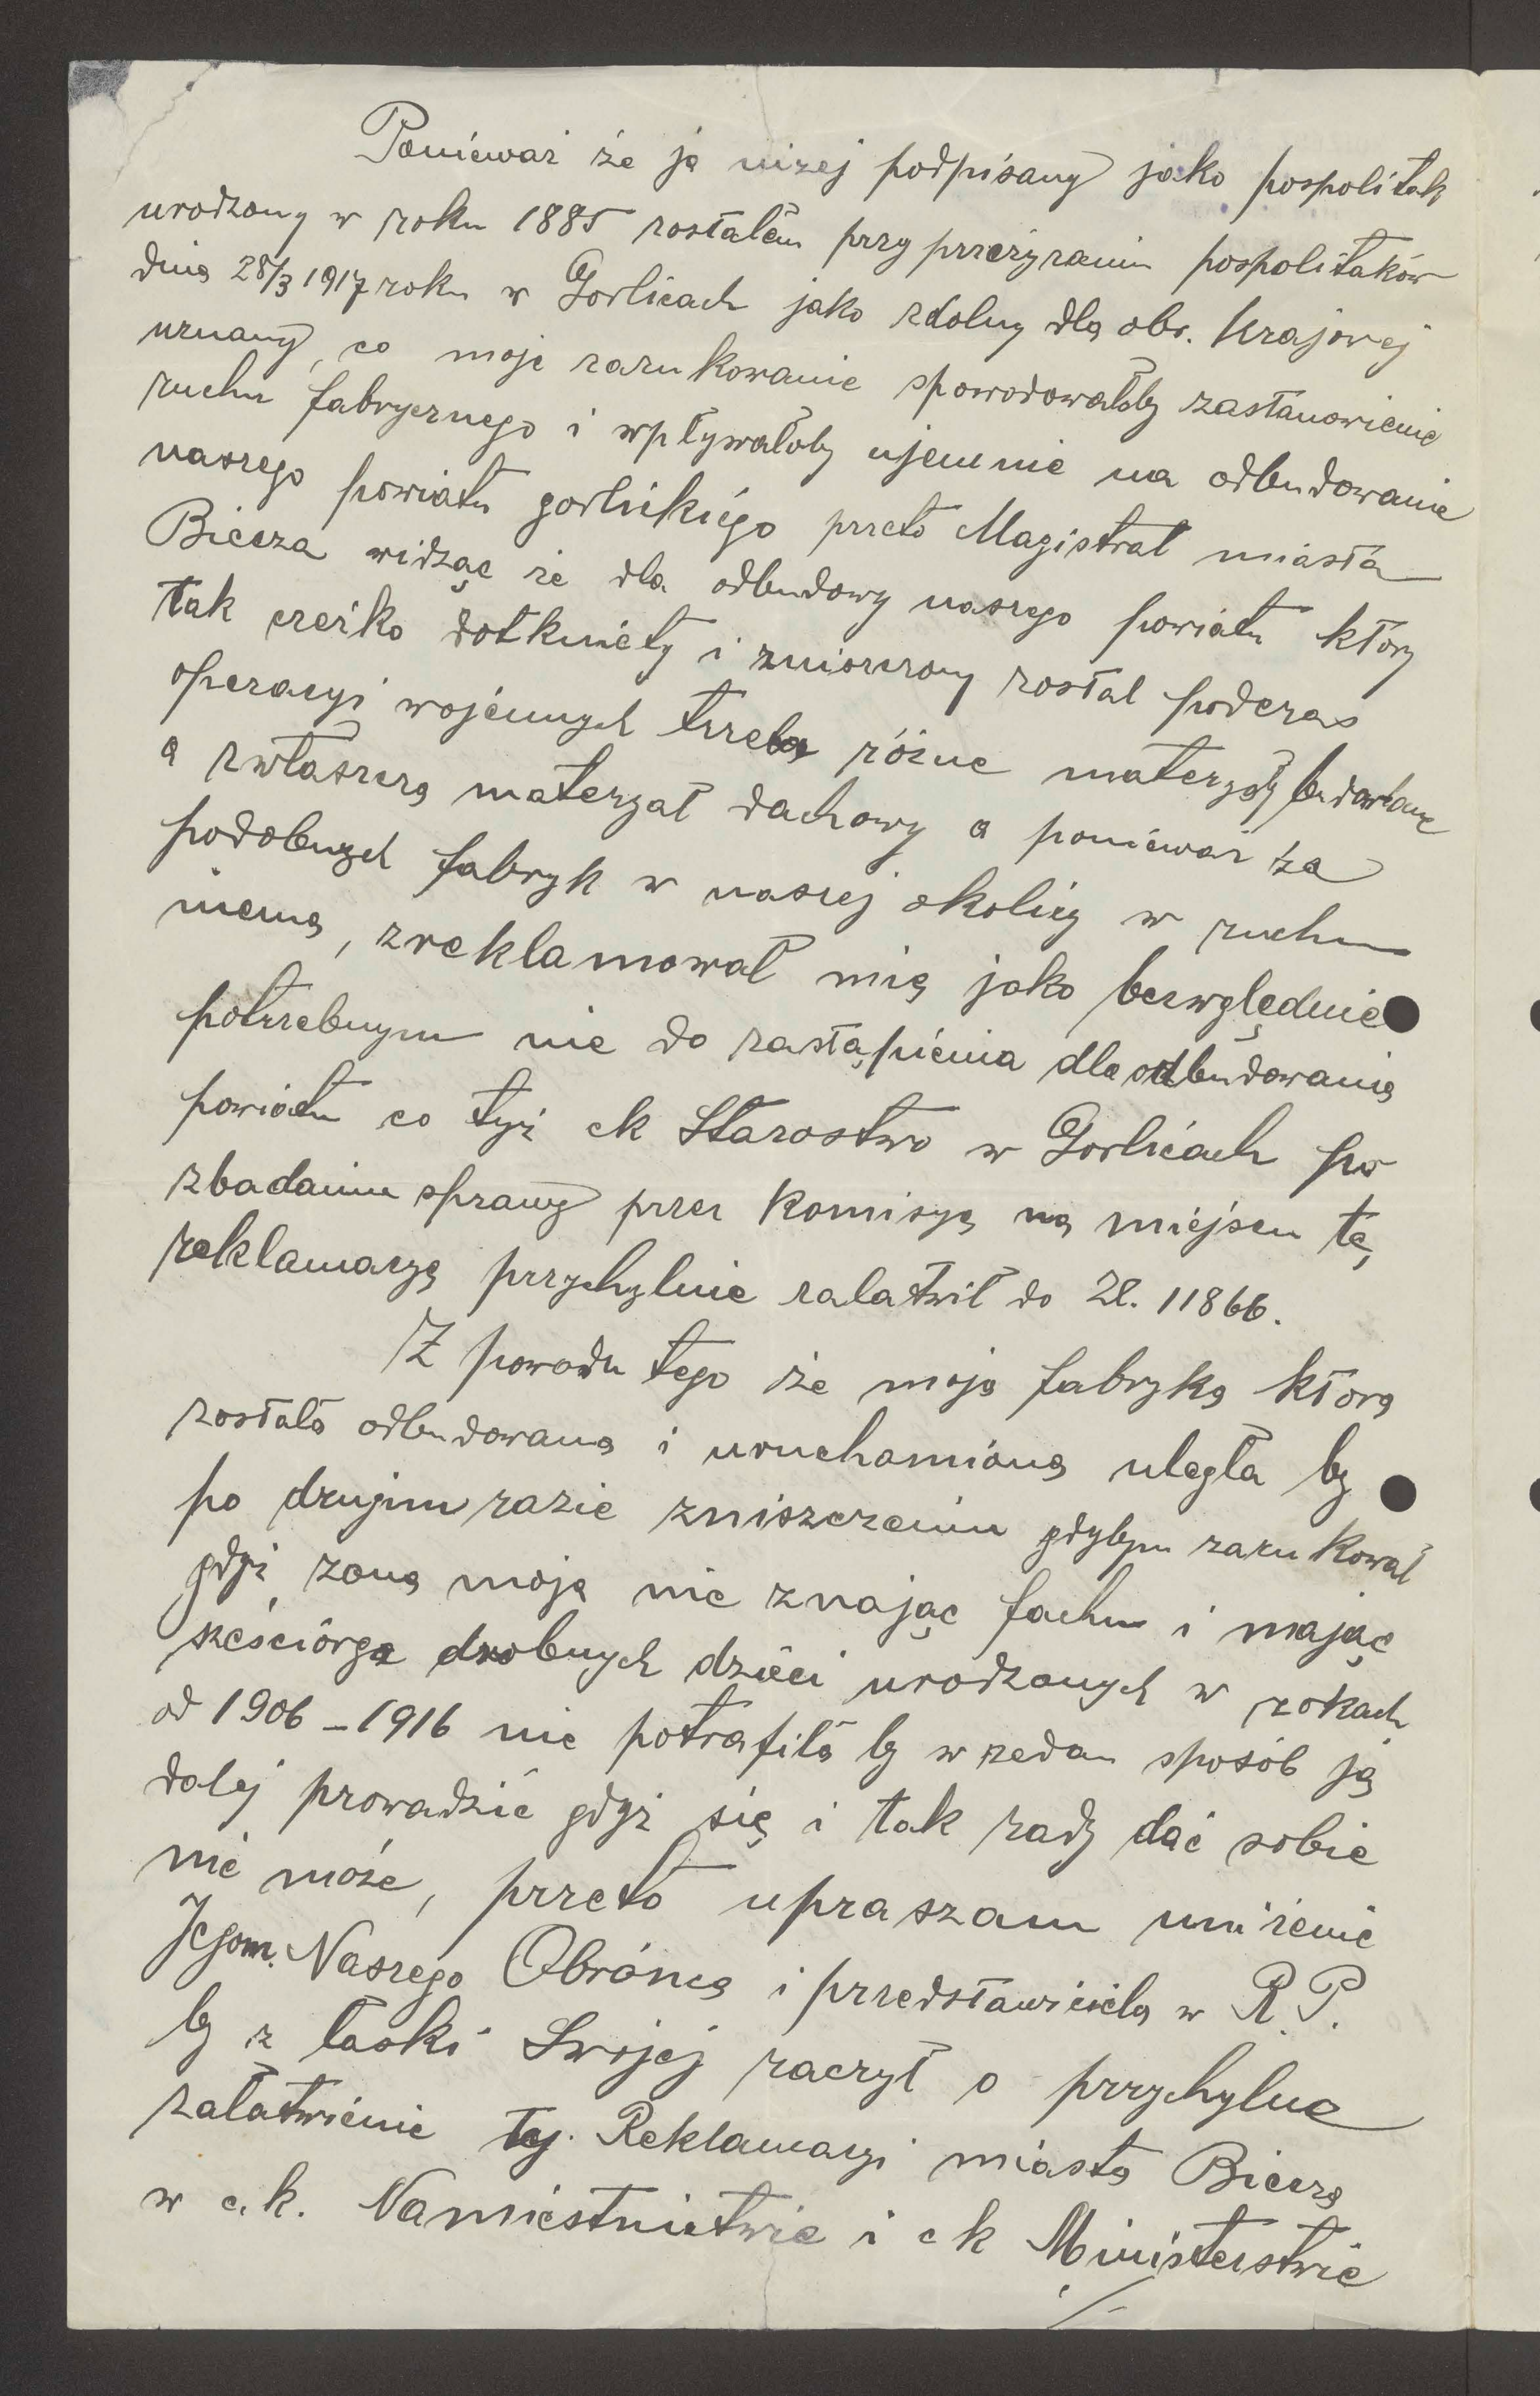 Ponieważ że ja niżej podpisany jako pospolitak
urodzony w roku 1885 zostałem przy przezyraniu pospolitaków
dnia 28/3 1917 roku w Gorlicach jako zdolny dla obr. Krajowej
uznany, co moje zarukowanie spowodowałoby zastanowienie
ruchu fabrycznego i wpływałoby ujemnie na odbudowanie
naszego powiatu gorlickiego przeto Magistrat miasta
Biecza widząc że dla odbudowy naszego powiatu który
tak czeżko dotknięty i zniszczony został podczas
operacyi wojennych trzeba różne materyały budowlane
a zwłaszcza materyał dachowy a ponieważ że
podobnych fabryk w naszej okolicy w ruchu
niema, zreklamował mię jako bezwględnie
potrzebnym nie do zastąpienia dla odbudowania
powiatu co tyż ck Starostwo w Gorlicach po
zbadaniu sprawy przez Komisyą na miejscu tę
reklamacyą przychylnie załatwił do Zl. 11866.
Z powodu tego że moja fabryka która
została odbudowana i uruchamiona uległa by
po drugim razie zniszczeniu gdybym zarukował
gdyż żona moja nie znając fachu i mając
sześciórga drobnych dzieci urodzonych w rokach
od 1906 – 1916 nie potrafiła by w żedan sposób ją
dalej prowadzić gdyż się i tak rady dać sobie
nie może, przeto upraszam uniżenie
Jegom. Naszego Obrónca i przedstawiciela w R. P.
by z łaski Swojej raczył o przychylne
załatwienie tej Reklamacyi miasta Biecza
w c.k. Namiestnictwie i c k Ministerstwie